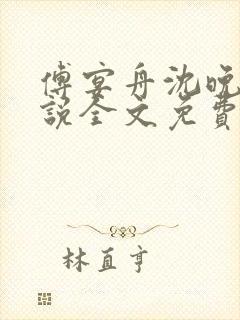 傅宴舟沈晚
說全文免費
林直亨